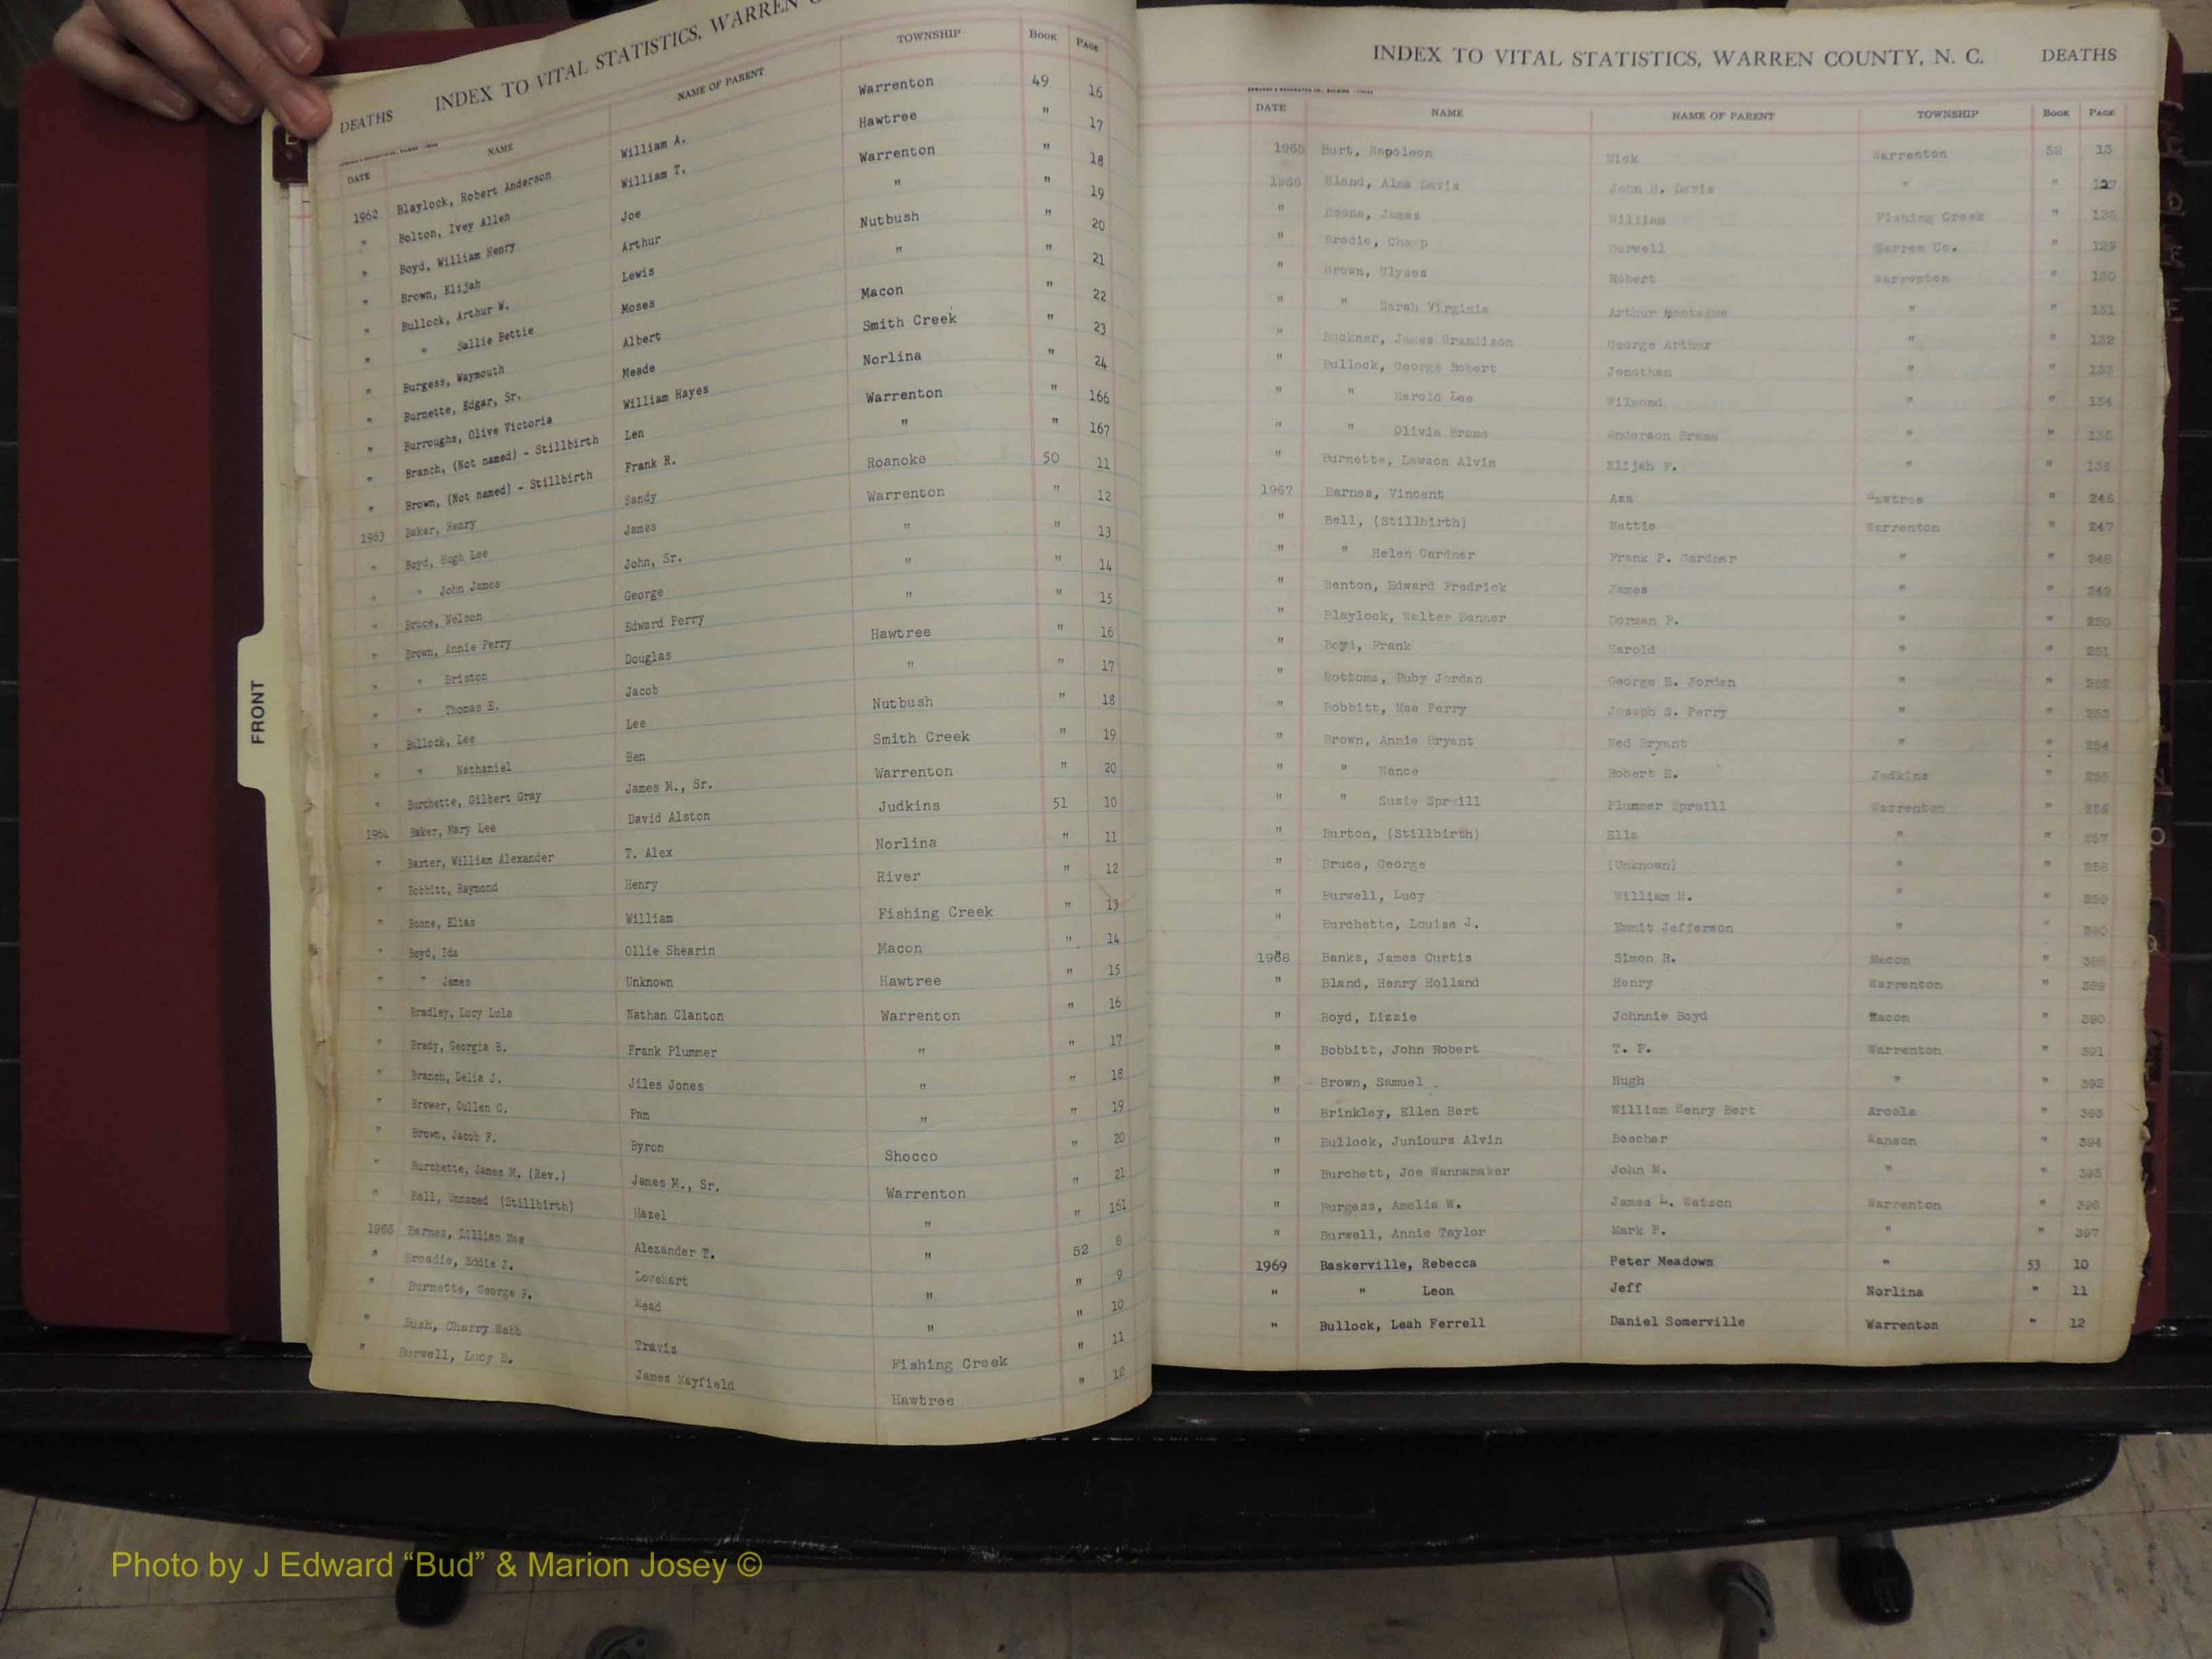 DEATHS INDEX TO VITAL STATISTICS, WARREN
DATE NAME NAME OF PARENT TOWNSHIP BOOK PAGE
1962 Blaylock, Robert Anderson William A. Warrenton 49 16
" Bolton, Ivey Allen William T. Hawtree " 17
" Boyd, William Henry Joe Warrenton " 18
" Brown, Elijah Arthur " " 19
" Bullock, Arthur W. Lewis Nutbush " 20
" " Sallie Bettie Moses " " 21
" Burgess, Waymouth Albert Macon " 22
" Burnette, Edgar, Sr. Meade Smith Creek " 23
" Burroughs, Olive Victoria William Hayes Norlina " 24
" Branch, (Not named) - Stillbirth Len Warrenton " 166
" Brown, (Not named) - Stillbirth Frank R. " " 167
1963 Baker, Henry Sandy Roanoke 50 11
" Boyd, Hugh Lee James Warrenton " 12
" " John James John, Sr. " " 13
" Bruce, Nelson George " " 14
" Brown, Annie Perry Edward Perry " " 15
" " Briston Douglas Hawtree " 16
" " Thomas E. Jacob " " 17
" Bullock, Lee Lee Nutbush " 18
" " Nathaniel Ben Smith Creek " 19
" Burchette, Gilbert Gray James M., Sr. Warrenton " 20
1964 Baker, Mary Lee David Alston Judkins 51 10
" Baxter, William Alexander T. Alex Norlina " 11
" Bobbitt, Raymond Henry River " 12
" Boone, Elias William Fishing Creek " 13
" Boyd, Ida Ollie Shearin Macon " 14
" " James Unknown Hawtree " 15
" Bradley, Lucy Lula Nathan Clanton Warrenton " 16
" Brady, Georgia B. Frank Plummer " " 17
" Branch, Delia J. Jiles Jones " " 18
" Brewer, Cullen C. Pam " " 19
" Brown, Jacob F. Byron Shocco " 20
" Burchette, James M. (Rev.) James M., Sr. Warrenton " 21
" Ball, Unnamed (Stillbirth) Hazel " " 161
1965 Barnes, Lillian Mae Alexander T. " 52 8
" Broadie, Eddie J. Lovehart " " 9
" Burnette, George P. Mead " " 10
" Bush, Cherry Webb Travis Fishing Creek " 11
" Burwell, Lucy B. James Mayfield Hawtree " 12
FRONT
INDEX TO VITAL STATISTICS, WARREN COUNTY, N. C. DEATHS
DATE NAME NAME OF PARENT TOWNSHIP BOOK PAGE
1965 Burt, Napoleon Nick Warrenton 52 13
1966 Bland, Alma Davis John H. Davis " " 127
" Boone, James William Fishing Creek " 128
" Brodie, Charp Burwell Warren Co. " 129
" Brown, Ulyses Robert Warrenton " 130
" " Sarah Virginia Arthur Montague " " 131
" Buckner, James Grandison George Arthur " " 132
" Bullock, George Robert Jonothan " " 133
" " Harold Lee Wilmond " " 134
" " Olivia Brame Anderson Brame " " 135
" Burnette, Lawson Alvin Elijah F. " " 136
1967 Barnes, Vincent Asa Hawtree " 246
" Bell, (Stillbirth) Mattie Warrenton " 247
" " Helen Gardner Frank P. Gardner " " 248
" Benton, Edward Fredrick James " " 249
" Blaylock, Walter Danner Dorman F. " " 250
" Boyd, Frank Harold " " 251
" Bottoms, Ruby Jordan George E. Jordan " " 252
" Bobbitt, Mae Perry Joseph S. Perry " " 253
" Brown, Annie Bryant Ned Bryant " " 254
" " Nance Robert E. Judkins " 255
" " Susie Spruill Plummer Spruill Warrenton " 256
" Burton, (Stillbirth) Ella " " 257
" Bruce, George (Unknown) " " 258
" Burwell, Lucy William H. " " 259
" Burchette, Louise J. Emmit Jefferson " " 260
1968 Banks, James Curtis Simon R. Macon " 388
" Bland, Henry Holland Henry Warrenton " 389
" Boyd, Lizzie Johnnie Boyd Macon " 390
" Bobbitt, John Robert T. F. Warrenton " 391
" Brown, Samuel Hugh " " 392
" Brinkley, Ellen Bert William Henry Bert Areola " 393
" Bullock, Juniours Alvin Beecher Manson " 394
" Burchett, Joe Wannamaker John M. " " 395
" Burgess, Amelia W. James L. Watson Warrenton " 396
" Burwell, Annie Taylor Mark P. " " 397
1969 Baskerville, Rebecca Peter Meadows " 53 10
" " Leon Jeff Norlina " 11
" Bullock, Leah Ferrell Daniel Somerville Warrenton " 12
Photo by J Edward “Bud” & Marion Josey ©